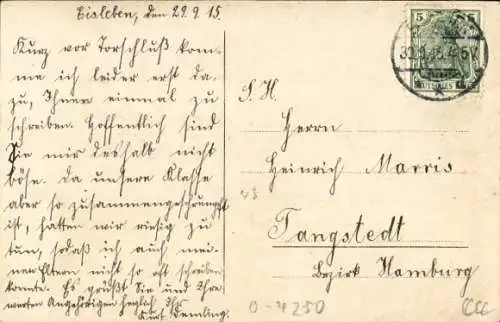 Eisleben, den 29.9.15.
Kurz vor Torschluß kom-
me ich leider erst da-
zu, Ihnen einmal zu
schreiben. Hoffentlich sind
Sie mir deshalb nicht
böse. Da unsere Klasse
aber so zusammengeschrumpft
ist, hatten wir riesig zu
tun, sodaß ich auch mei-
nen Eltern nicht so oft schreiben
konnte. Es grüßt Sie und Ihre
werten Angehörigen herzlich Ihr
Kurt Demling.
S. H.
Herrn
Heinrich Marris
Tangstedt
Bezirk Hamburg
5
DEUTSCHES
48
0-4250